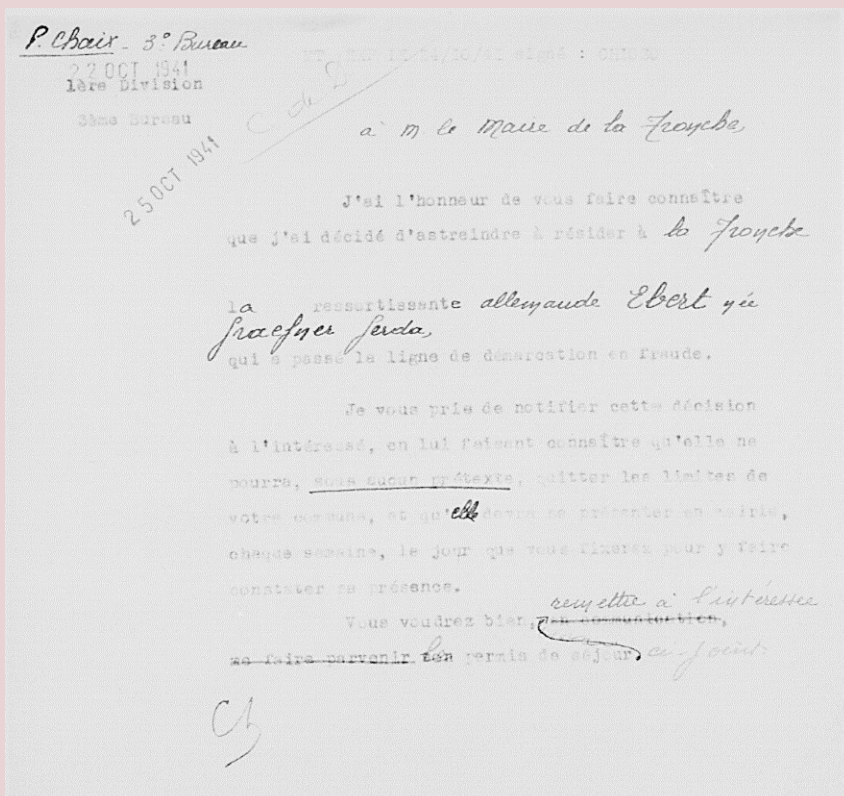 P. Chaix - 3° Bureau
22 OCT 1941
1ère Division
3ème Bureau
25 OCT 1941
C de D
signé :
à M le Maire de la Tronche,
J'ai l'honneur de vous faire connaître
que j'ai décidé d'astreindre à résider à la Tronche
la ressortissante allemande Ebert née
Graefner Gerda,
qui a passé la ligne de démarcation en fraude.
Je vous prie de notifier cette décision
à l'intéressé, en lui faisant connaître qu'elle ne
pourra, sous aucun prétexte, quitter les limites de
votre commune, et qu'elle devra se présenter en mairie,
chaque semaine, le jour que vous fixerez pour y faire
constater sa présence.
remettre à l'intéressée
Vous voudrez bien, en communication,
me faire parvenir son permis de séjour, ci-joint
Ch